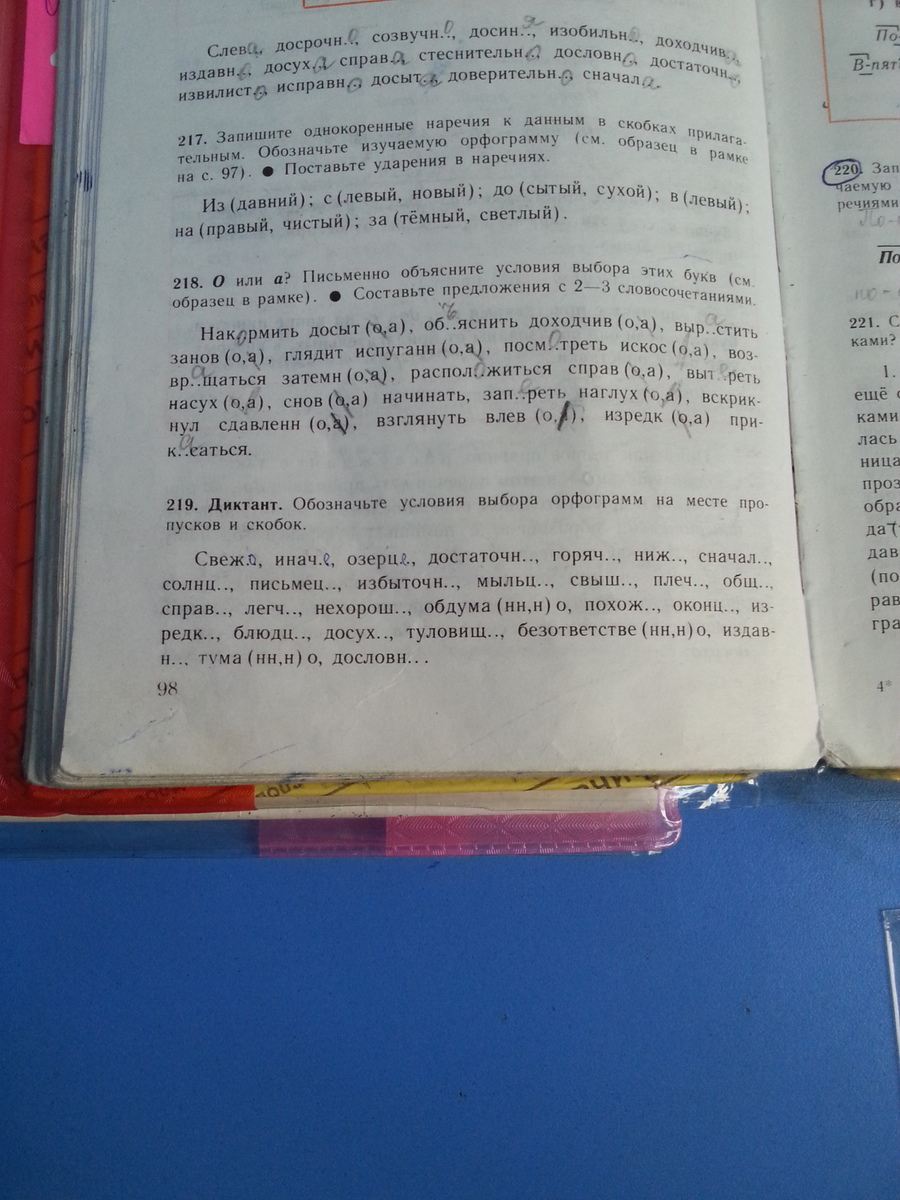 Слева, досрочн.о, созвучн.о, досин..я, изобильно, доходчив..,
издавн.., досуха, справа, стеснительно, дословно, достаточн..,
извилисто, исправно, досыт.., доверительно, сначала.
217. Запишите однокоренные наречия к данным в скобках прилага-
тельным. Обозначьте изучаемую орфограмму (см. образец в рамке
на с. 97). ● Поставьте ударения в наречиях.
Из (давний); с (левый, новый); до (сытый, сухой); в (левый);
на (правый, чистый); за (тёмный, светлый).
218. О или а? Письменно объясните условия выбора этих букв (см.
образец в рамке). ● Составьте предложения с 2—3 словосочетаниями.
Накормить досыт (о,а), об..яснить доходчив (о,а), выр..стить
занов (о,а), глядит испуганн (о,а), посм..треть искос (о,а), воз-
вр..щаться затемн (о,а), распол..житься справ (о,а), выт..реть
насух (о,а), снов (о,а) начинать, зап..реть наглух (о,а), вскрик-
нул сдавленн (о,а), взглянуть влев (о,а), изредк (о,а) при-
к..саться.
219. Диктант. Обозначьте условия выбора орфограмм на месте про-
пусков и скобок.
Свежо, инач.е, озерце, достаточн.., горяч.., ниж.., сначал..,
солнц.., письмец.., избыточн.., мыльц.., свыш.., плеч.., общ..,
справ.., легч.., нехорош.., обдума (нн,н) о, похож.., оконц.., из-
редк.., блюдц.., досух.., туловищ.., безответстве (нн,н) о, издав-
н.., тума (нн,н) о, дословн...
98
В-пят
220. Зап
чаемую
речиями
По
221. С
ками?
1.
ещё с
ками
лась
ница
проз
обра
да
дав
(по
рав
гра
4*